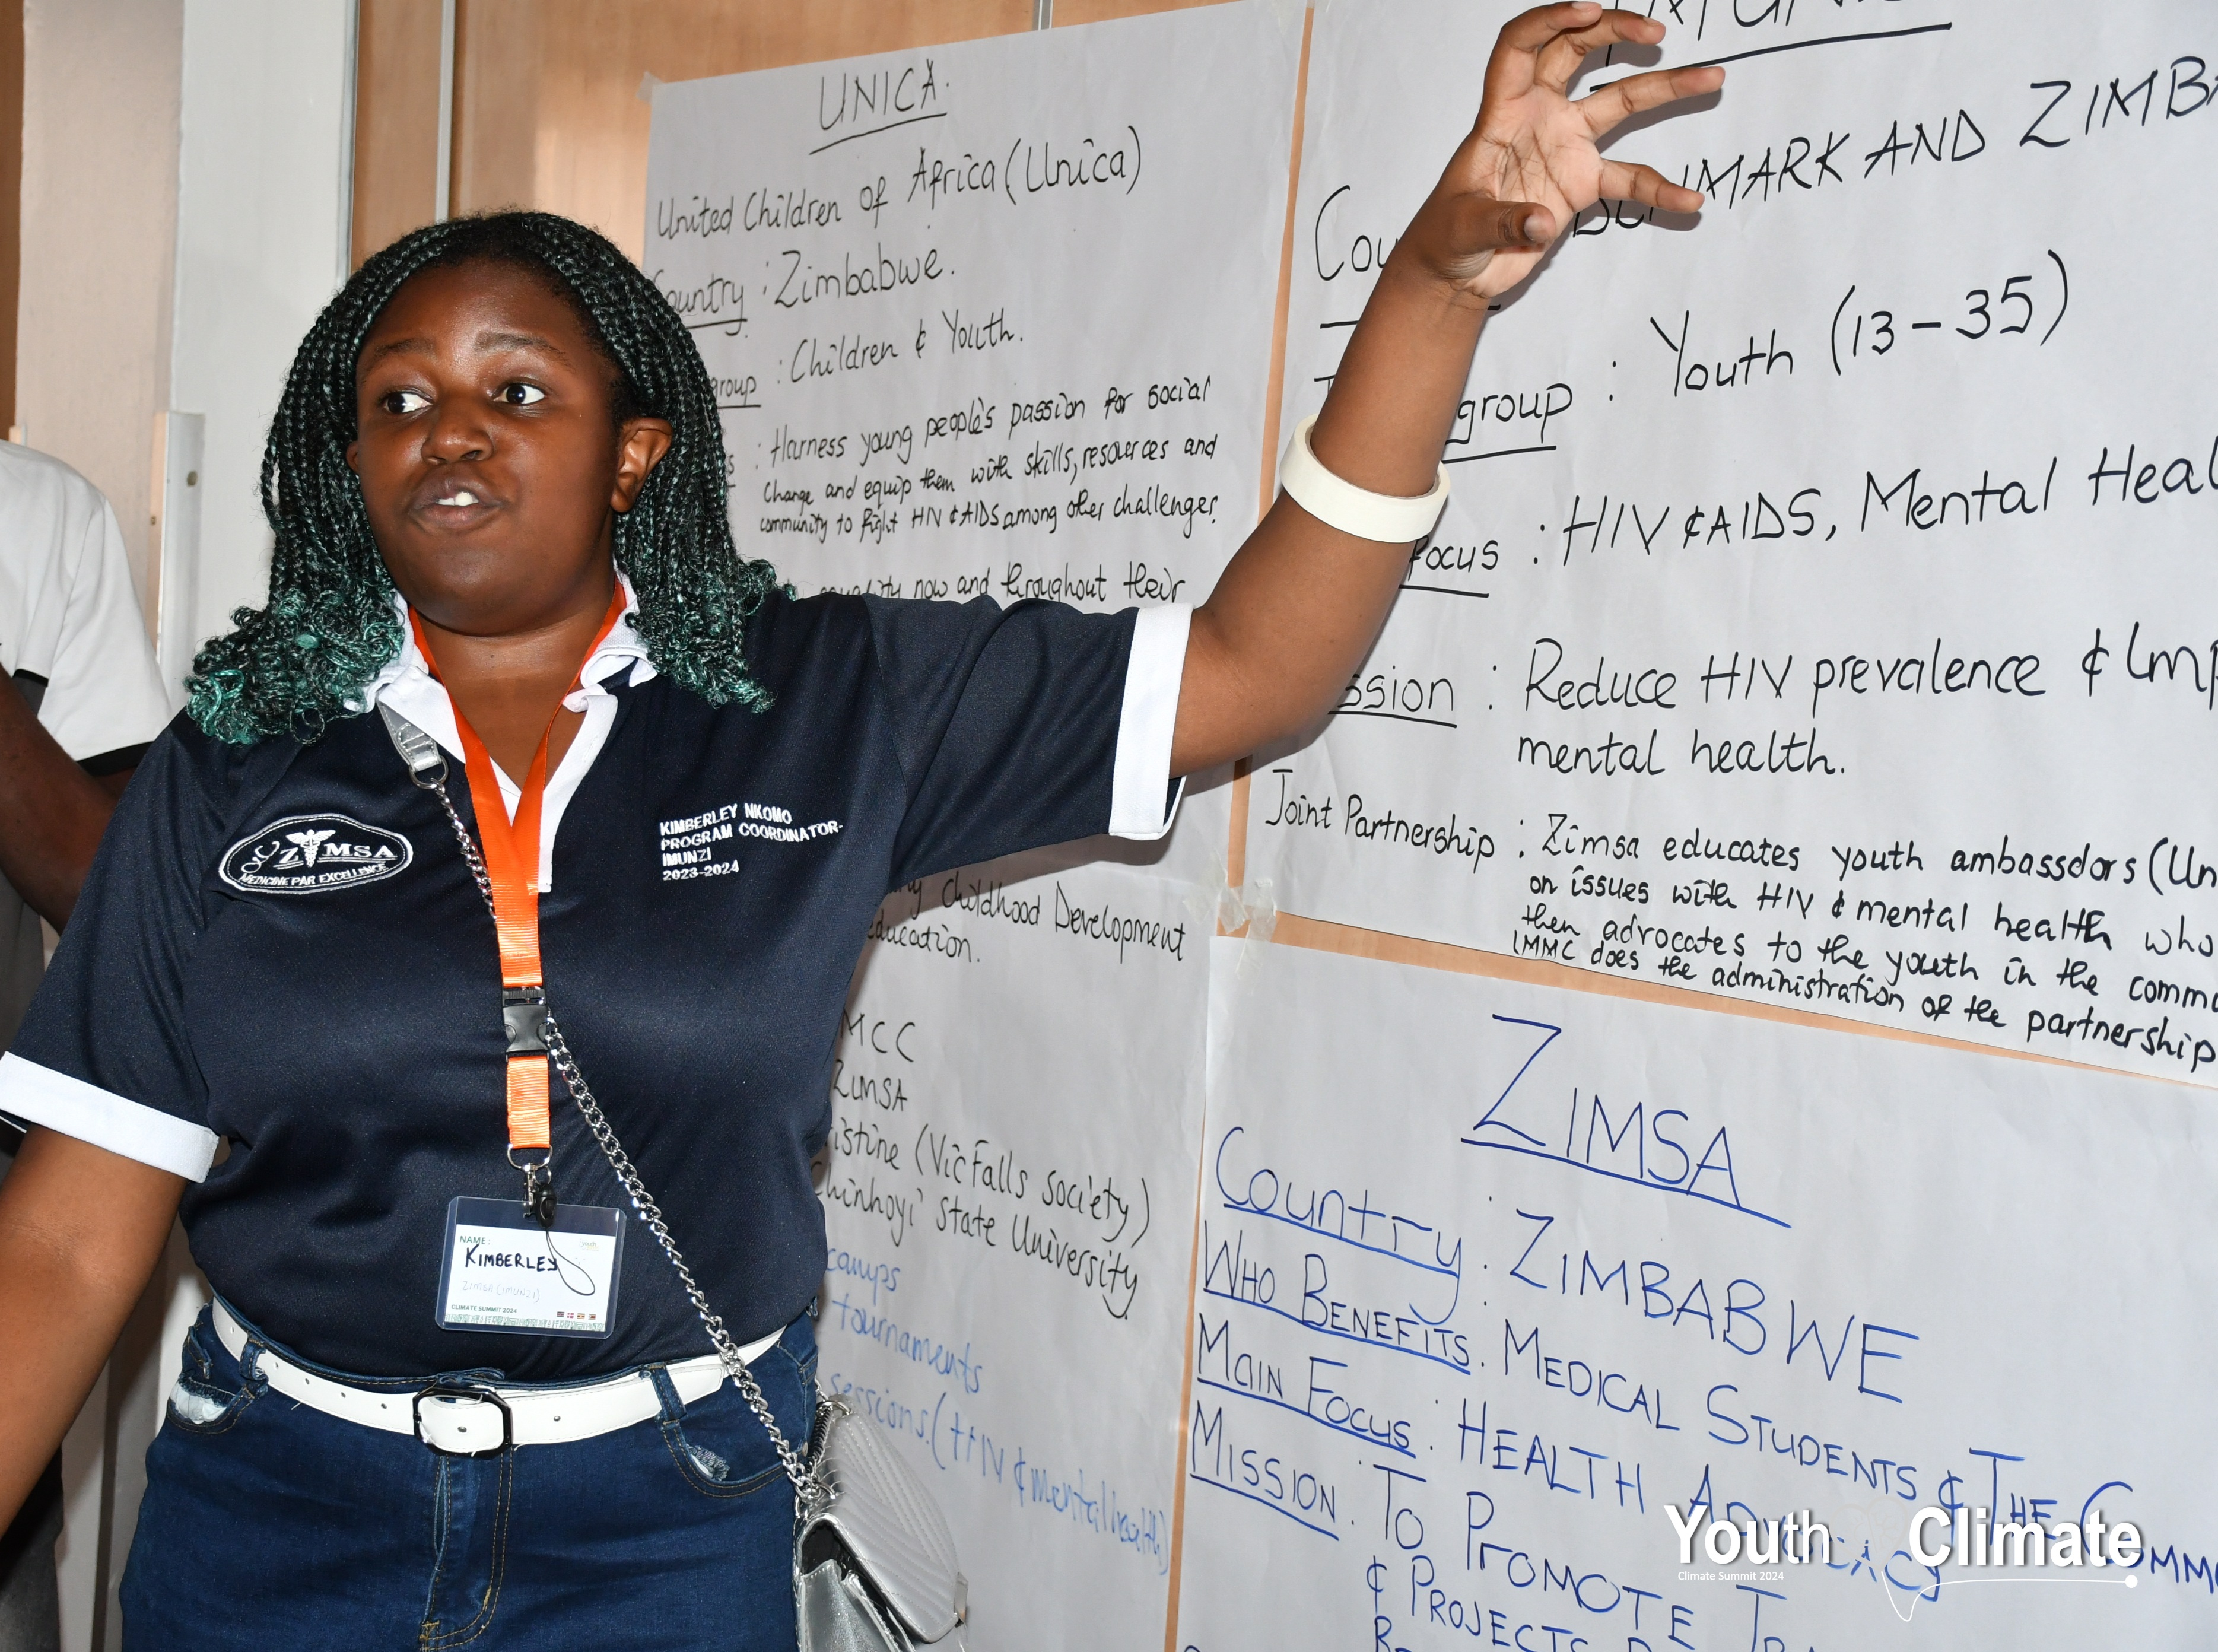 UNICA.
United Children of Africa (Unica)
Country : Zimbabwe.
group : Children & Youth.
: Harness young people's passion for social
change and equip them with skills, resources and
community to fight HIV & AIDS among other challenges.
equality now and throughout their
Childhood Development
education.
MCC
ZIMSA
(Vic Falls Society)
Chinhoyi State University
camps
tournaments
sessions. (HIV & mental health)
DENMARK AND
group : Youth (13-35)
Focus : HIV & AIDS, Mental
: Reduce HIV prevalence &
mental health.
Joint Partnership : Zimsa educates youth ambassdors
on issues with HIV & mental health who
then advrocates to the youth in the
IMMC does the administration of the partnership
ZIMSA
Country : ZIMBABWE
WHO BENEFITS. MEDICAL STUDENTS & THE
MAIN FOCUS : HEALTH ADVOCACY
MISSION. TO PROMOTE
& PROJECTS
ZIMSA
MEDICINE PAR EXCELLENCE
KIMBERLEY NKOMO
PROGRAM COORDINATOR-
IMUNZI
2023-2024
NAME:
KIMBERLEY
ZIMSA (IMUNZI)
CLIMATE SUMMIT 2024
Youth Climate
Climate Summit 2024